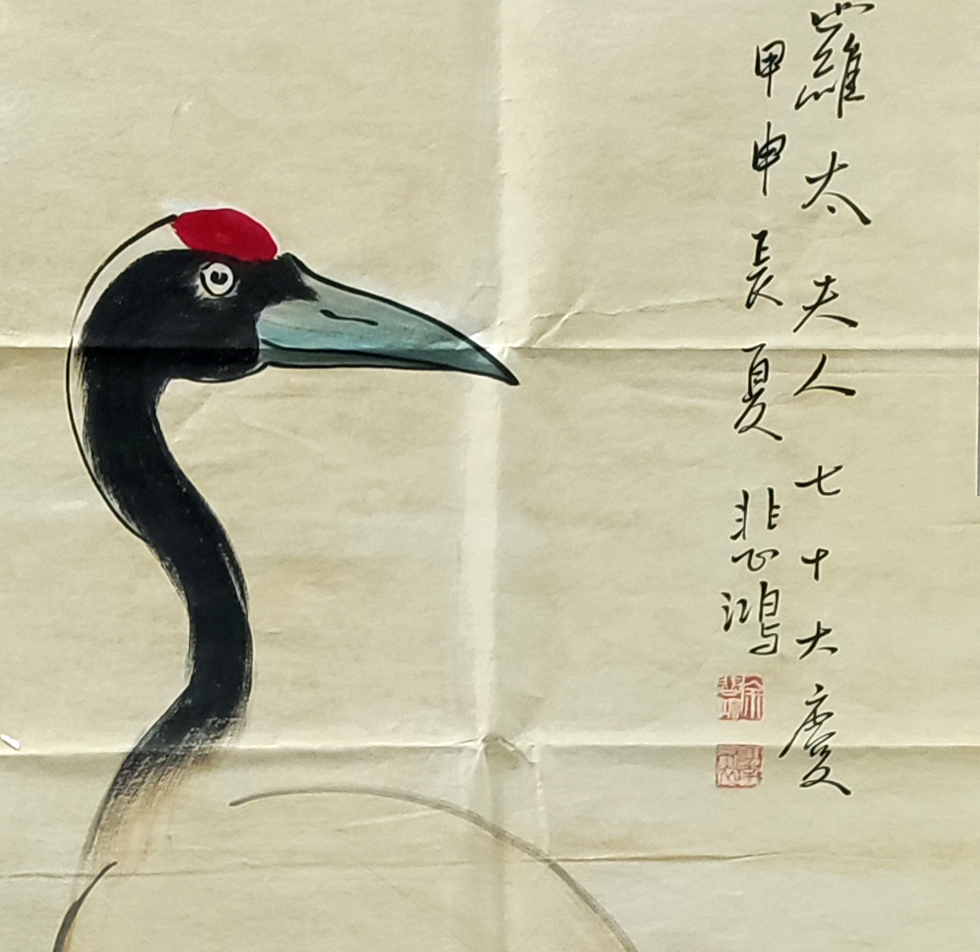 羅太夫人七十大慶
甲申長夏悲鴻